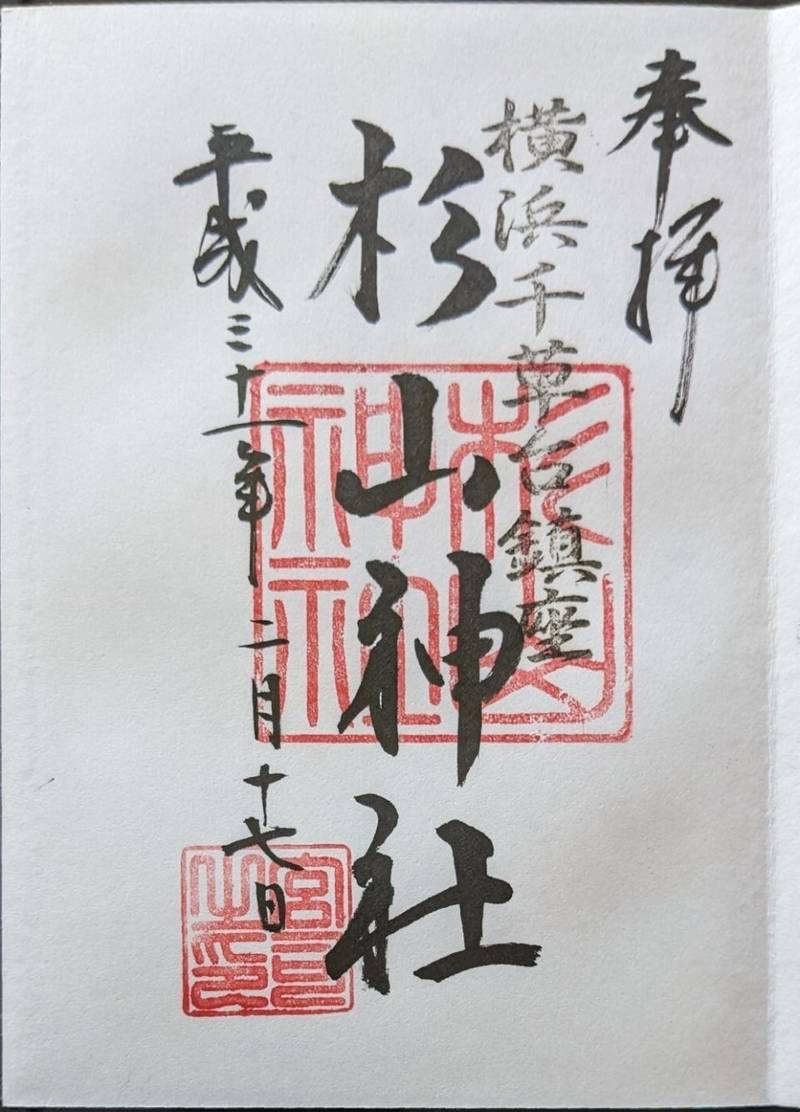 奉拝
横浜千草台鎮座
杉山神社
杉山神社
平成三十一年二月十七日
宮司之印